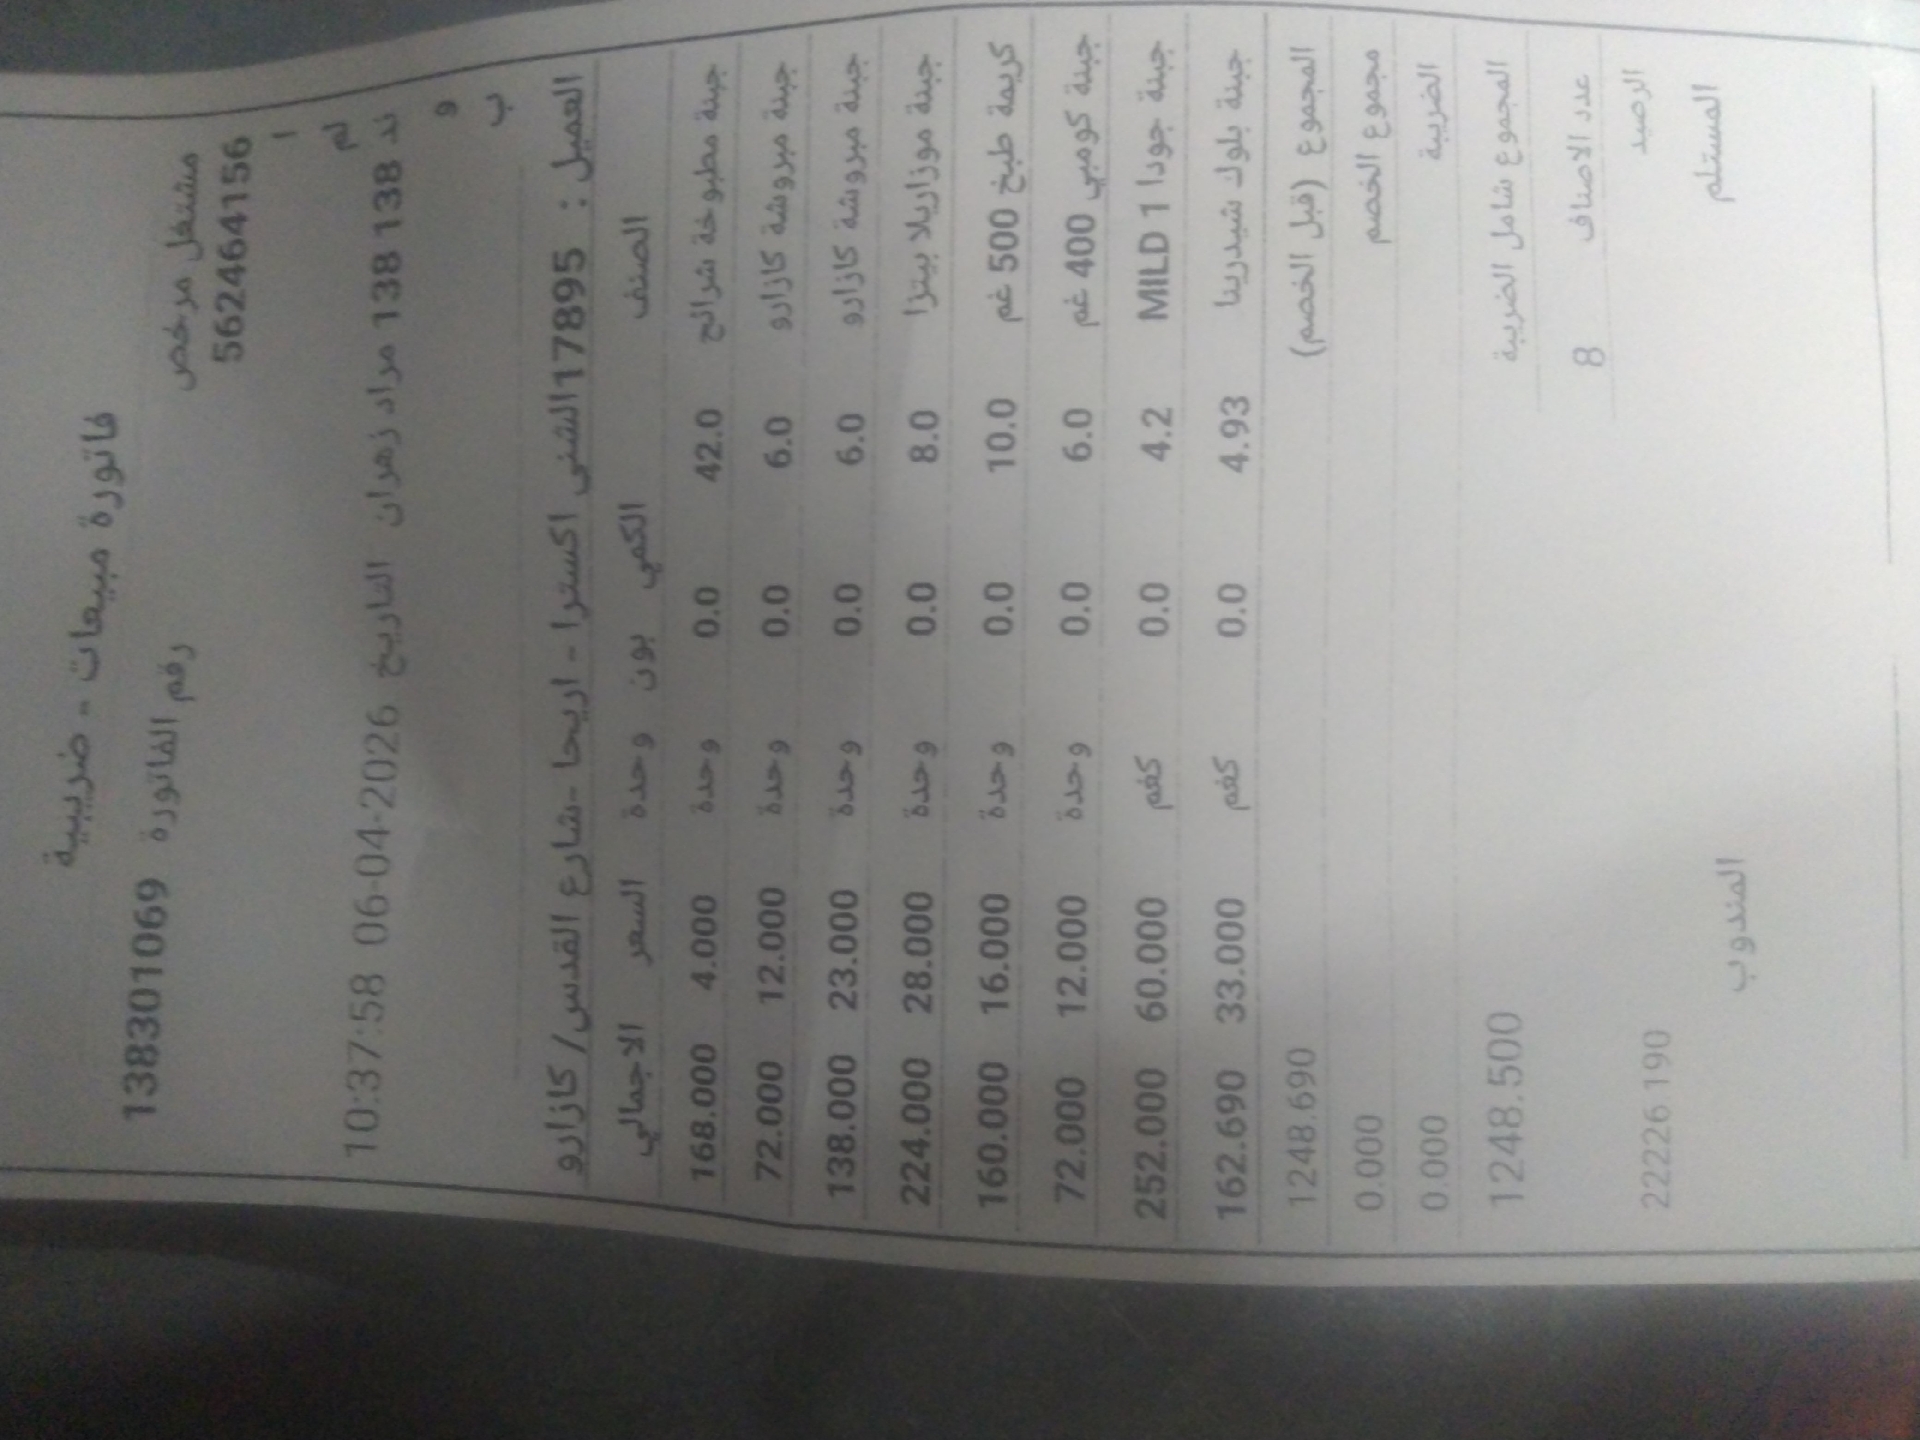 فاتورة مبيعات - ضريبية
مشتغل مرخص رقم الفاتورة 138301069
562464156
ا
لم
ند 138 138 مراد زهران التاريخ 2026-04-06 10:37:58
و
ب
العميل : 17895الشني اكسترا - اريحا -شارع القدس/ كازارو
الصنف الكمي بون وحدة السعر الاجمالي
جبنة مطبوخة شرائح 42.0 0.0 وحدة 4.000 168.000
جبنة مبروشة كازارو 6.0 0.0 وحدة 12.000 72.000
جبنة مبروشة كازارو 6.0 0.0 وحدة 23.000 138.000
جبنة موزاريلا بيتزا 8.0 0.0 وحدة 28.000 224.000
كريمة طبخ 500 غم 10.0 0.0 وحدة 16.000 160.000
جبنة كومبي 400 غم 6.0 0.0 وحدة 12.000 72.000
جبنة جودا MILD 1 4.2 0.0 كغم 60.000 252.000
جبنة بلوك شيدرينا 4.93 0.0 كغم 33.000 162.690
المجموع (قبل الخصم) 1248.690
مجموع الخصم 0.000
الضريبة 0.000
المجموع شامل الضريبة 1248.500
عدد الاصناف 8
الرصيد 22226.190
المستلم المندوب